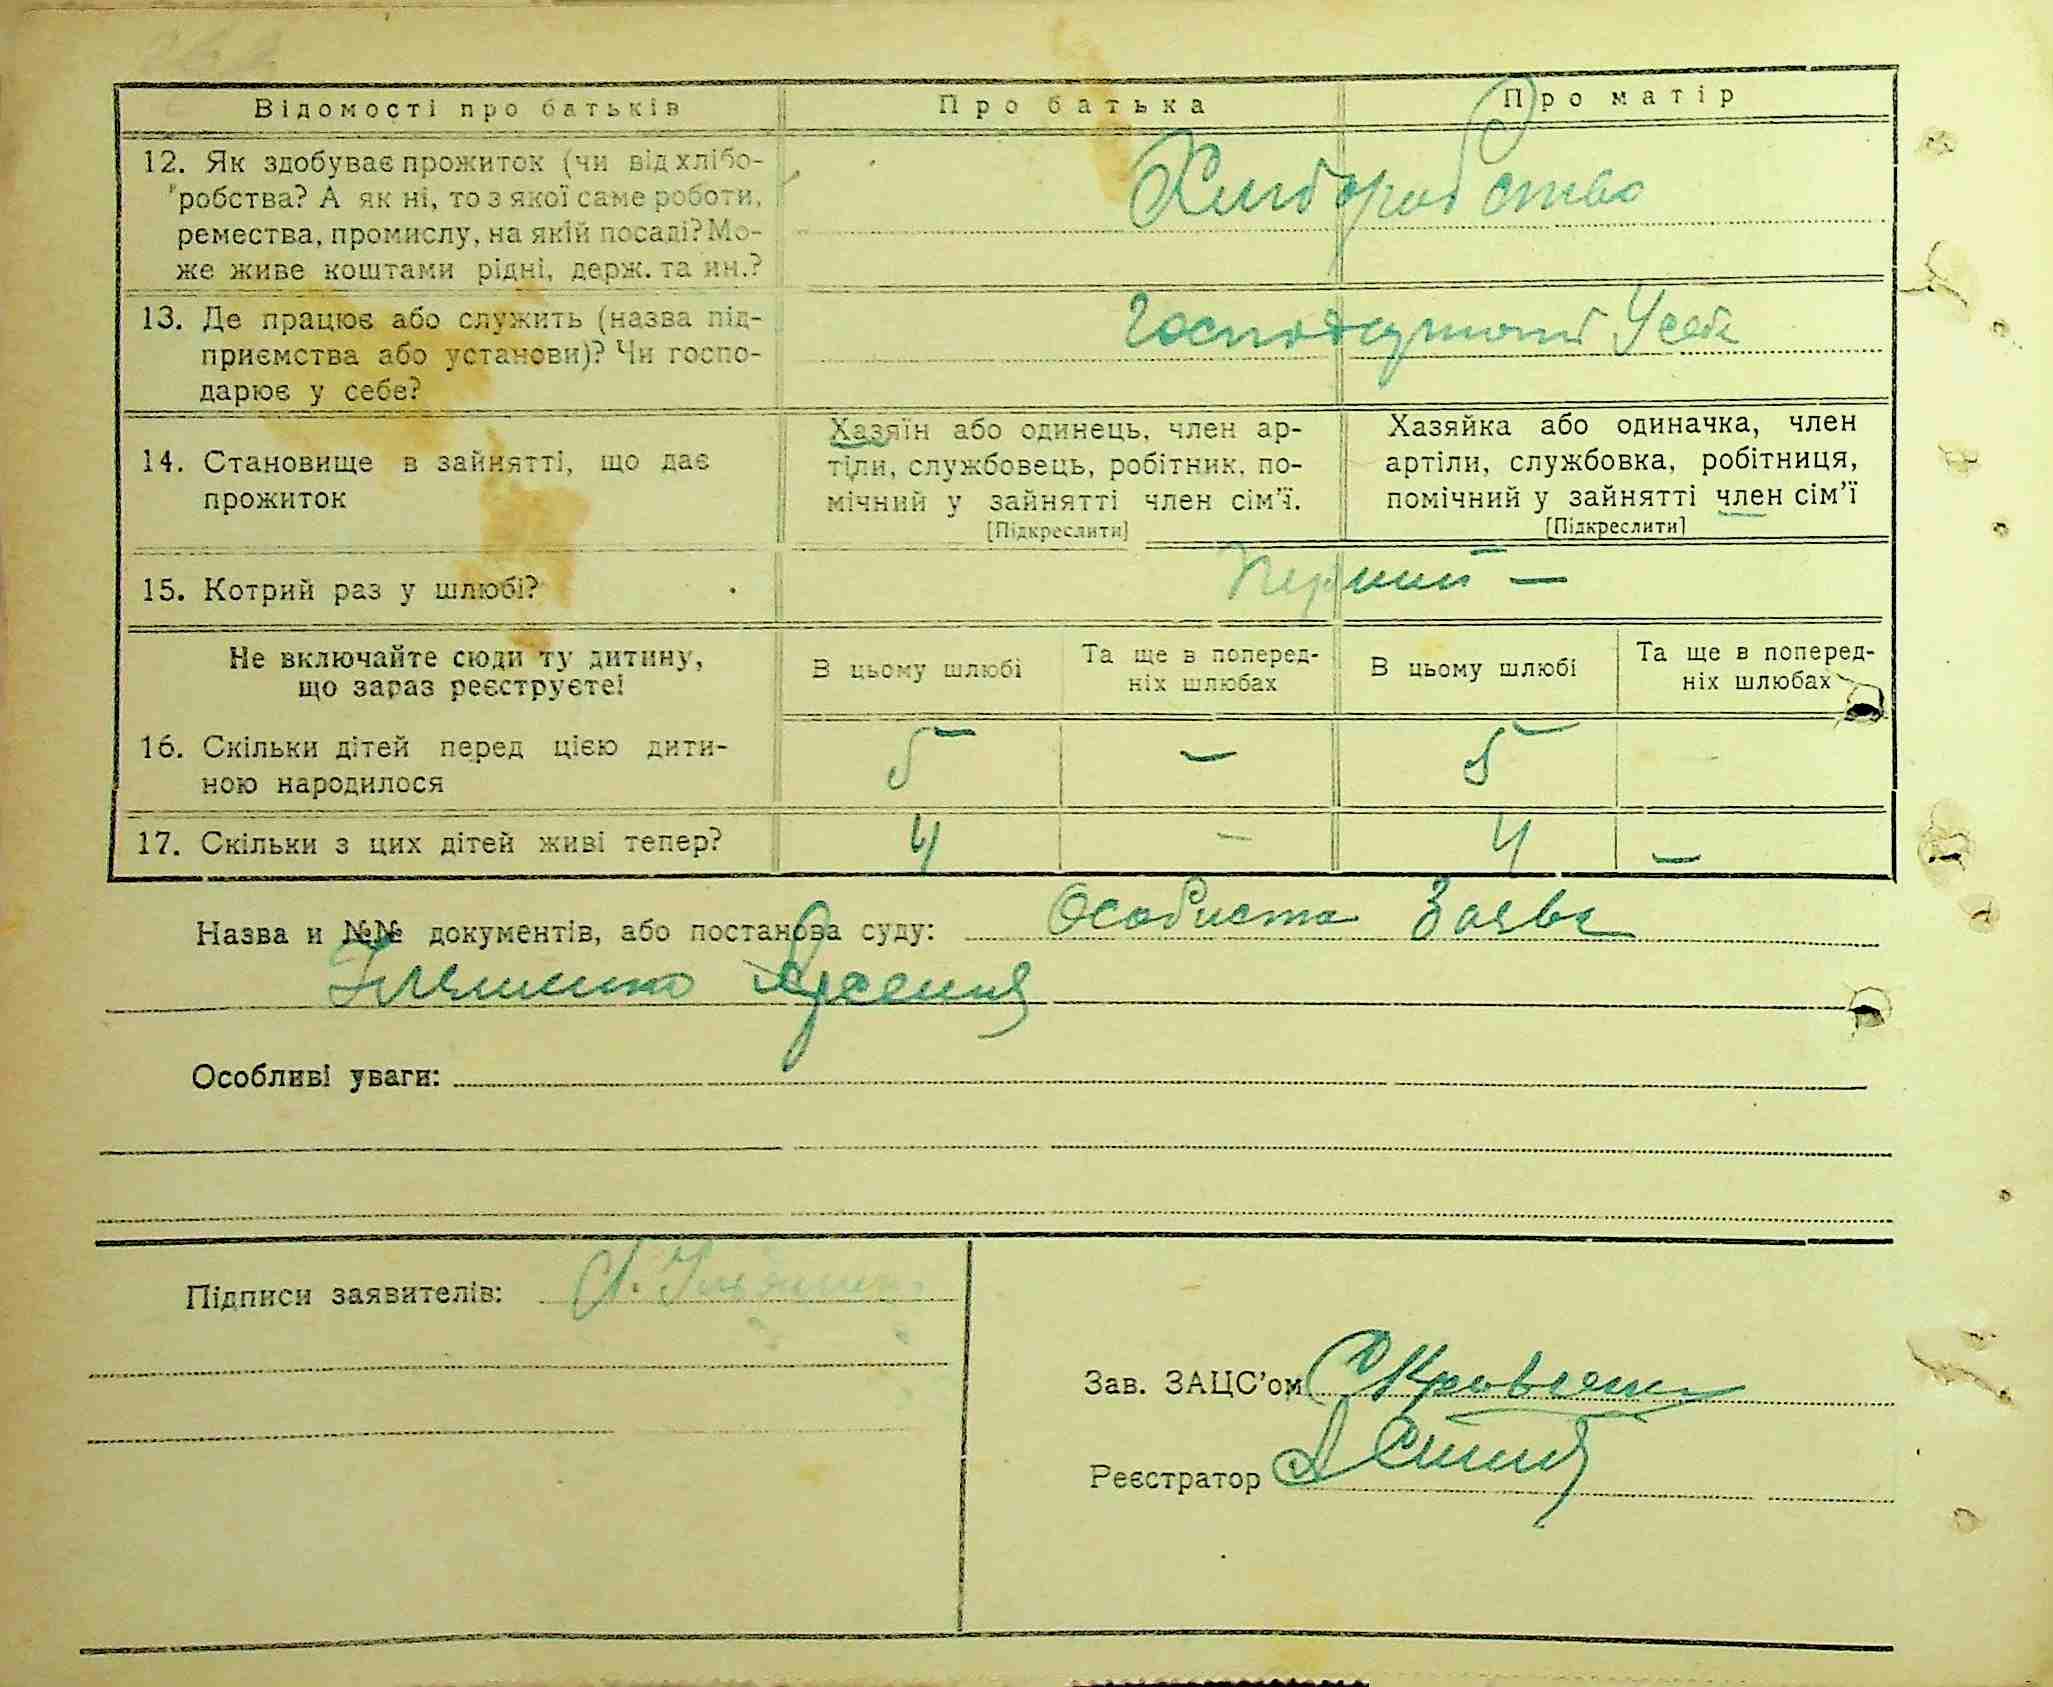 Відомості про батьків Про батька Про матір
12. Як здобуває прожиток (чи від хлібо-
робства? А як ні, то з якої саме роботи,
ремества, промислу, на якій посаді? Мо-
же живе коштами рідні, держ. та ин.?
Хліборобство
13. Де працює або служить (назва під-
приємства або установи)? Чи госпо-
дарює у себе?
У себе
14. Становище в зайнятті, що дає
прожиток
Хазяїн або одинець, член ар-
тіли, службовець, робітник, по-
мічний у зайнятті член сім'ї.
[Підкреслити]
Хазяйка або одиначка, член
артіли, службовка, робітниця,
помічний у зайнятті член сім'ї
[Підкреслити]
15. Котрий раз у шлюбі? Перший —
Не включайте сюди ту дитину,
що зараз реєструєте!
В цьому шлюбі
Та ще в поперед-
ніх шлюбах
В цьому шлюбі
Та ще в поперед-
ніх шлюбах
16. Скільки дітей перед цією дити-
ною народилося
5 — 5
17. Скільки з цих дітей живі тепер? 4 — 4 —
Назва и №№ документів, або постанова суду: Особиста Заява
Особливі уваги:
Підписи заявителів:
Зав. ЗАЦС'ом
Реєстратор